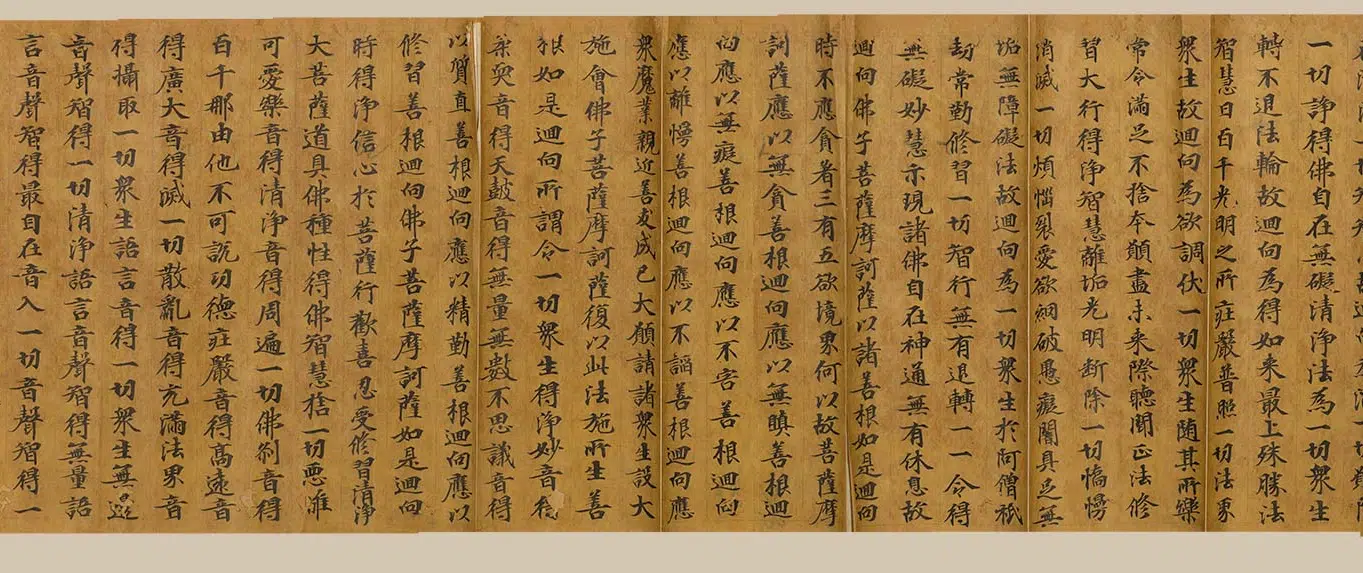 一切諍得佛自在無礙清淨法為一切衆生
轉不退法輪故迴向為得如来最上殊勝法
智慧日百千光明之所莊嚴普照一切法界
衆生故迴向為欲調伏一切衆生随其所樂
常令滿足不捨本願盡未来際聽聞正法修
習大行得淨智慧離垢光明断除一切憍慢
消滅一切煩惱裂愛欲網破愚癡闇具足無
垢無障礙法故迴向為一切衆生於阿僧祇
劫常勤修習一切智行無有退轉一一令得
無礙妙慧示現諸佛自在神通無有休息故
迴向佛子菩薩摩訶薩以諸善根如是迴向
時不應貪著三有五欲境界何以故菩薩摩
訶薩應以無貪善根迴向應以無瞋善根迴
向應以無癡善根迴向應以不害善根迴向
應以離慢善根迴向應以不諂善根迴向應
衆魔業親近善友成已大願請諸衆生設大
施會佛子菩薩摩訶薩復以此法施所生善
根如是迴向所謂令一切衆生得淨妙音得
柔耎音得天鼓音得無量無數不思議音得
以質直善根迴向應以精勤善根迴向應以
修習善根迴向佛子菩薩摩訶薩如是迴向
時得淨信心於菩薩行歡喜忍受修習清淨
大菩薩道具佛種性得佛智慧捨一切惡離
可愛樂音得清淨音得周遍一切佛剎音得
百千那由他不可說功德莊嚴音得高遠音
得廣大音得滅一切散亂音得充滿法界音
得攝取一切衆生語言音得一切衆生無邊
音聲智得一切清淨語言音聲智得無量語
言音聲智得最自在音入一切音聲智得一